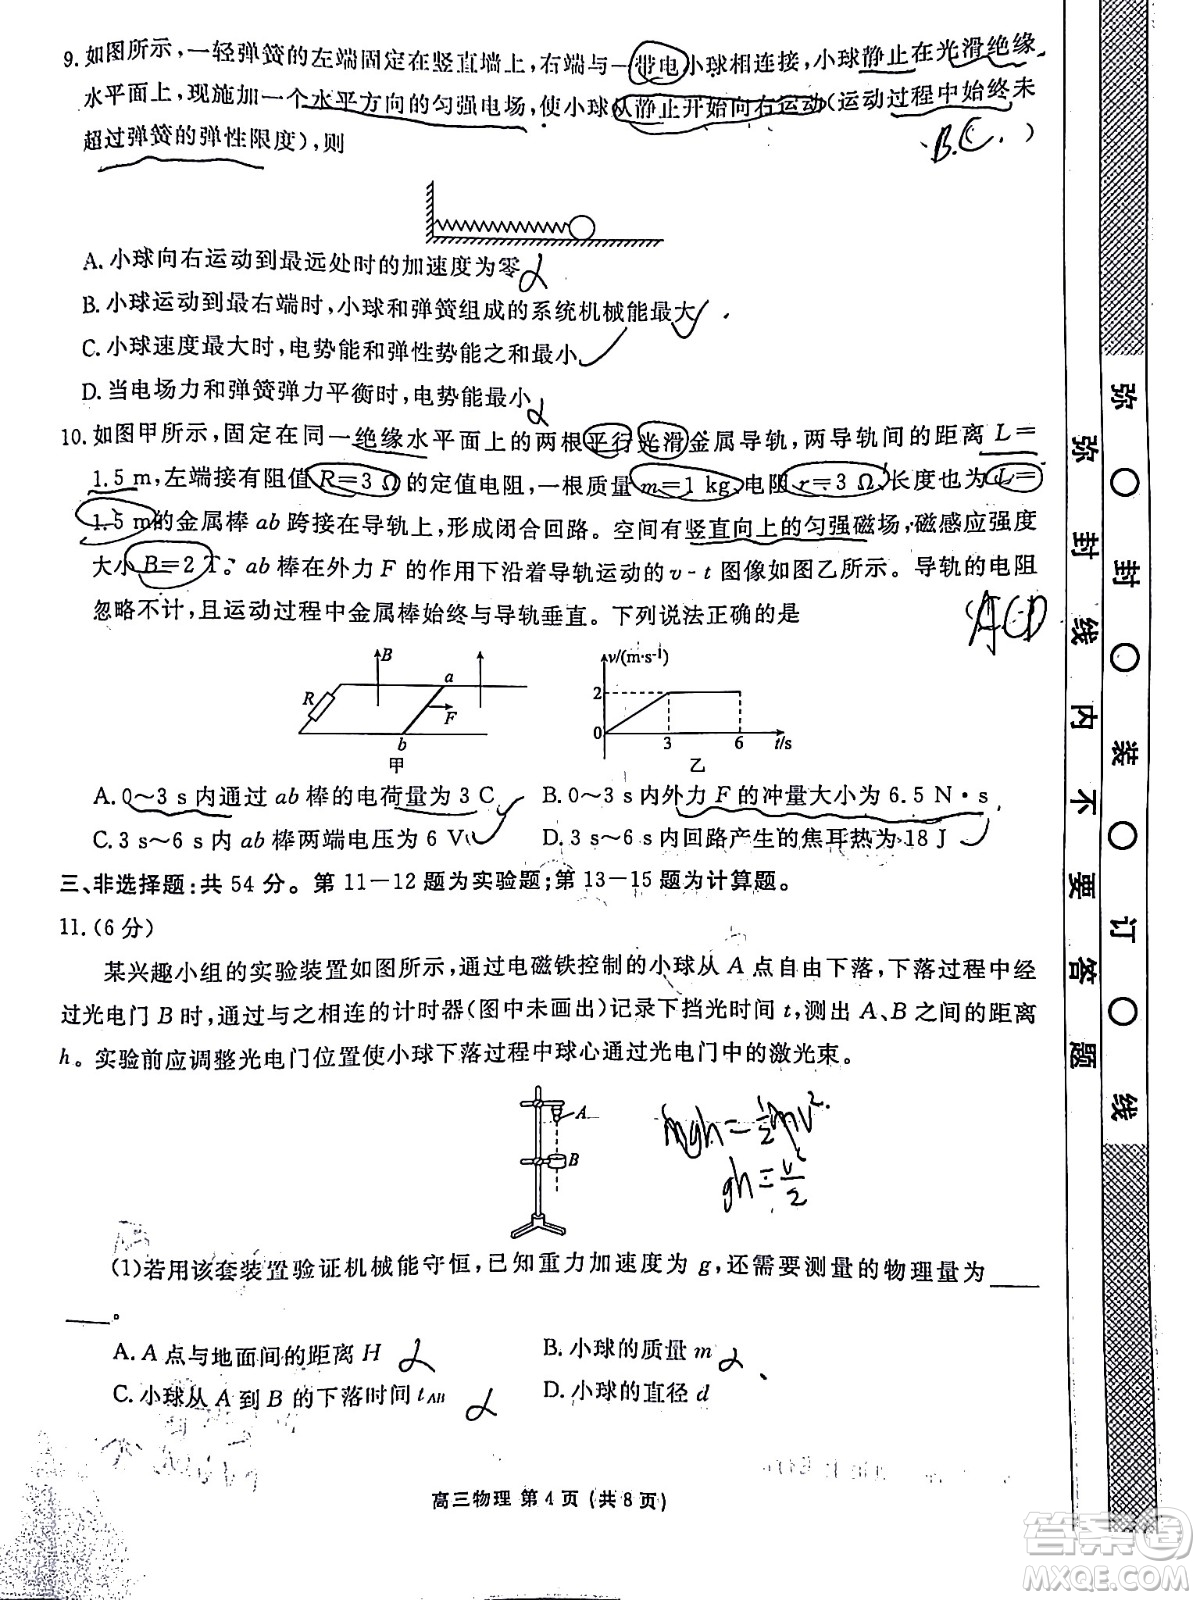 9. 如图所示,一轻弹簧的左端固定在竖直墙上,右端与一带电小球相连接,小球静止在光滑绝缘
水平面上,现施加一个水平方向的匀强电场,使小球从静止开始向右运动(运动过程中始终未
超过弹簧的弹性限度),则
B.C. )
A. 小球向右运动到最远处时的加速度为零
B. 小球运动到最右端时,小球和弹簧组成的系统机械能最大
C. 小球速度最大时,电势能和弹性势能之和最小
D. 当电场力和弹簧弹力平衡时,电势能最小
10. 如图甲所示,固定在同一绝缘水平面上的两根平行光滑金属导轨,两导轨间的距离 L=
1.5 m,左端接有阻值 R=3 Ω 的定值电阻,一根质量 m=1 kg、电阻 r=3 Ω、长度也为 L=
1.5 m的金属棒 ab 跨接在导轨上,形成闭合回路。空间有竖直向上的匀强磁场,磁感应强度
大小 B=2 T。ab 棒在外力 F 的作用下沿着导轨运动的 v-t 图像如图乙所示。导轨的电阻
忽略不计,且运动过程中金属棒始终与导轨垂直。下列说法正确的是
ACD
B
a
R
F
b
甲
v/(m·s⁻¹)
2
0
3
6
t/s
乙
A. 0~3 s 内通过 ab 棒的电荷量为 3 C
B. 0~3 s内外力 F 的冲量大小为 6.5 N·s
C. 3 s~6 s 内 ab 棒两端电压为 6 V
D. 3 s~6 s 内回路产生的焦耳热为 18 J
三、非选择题:共 54 分。第 11-12 题为实验题;第 13-15 题为计算题。
11. (6 分)
某兴趣小组的实验装置如图所示,通过电磁铁控制的小球从 A 点自由下落,下落过程中经
过光电门 B 时,通过与之相连的计时器(图中未画出)记录下挡光时间 t,测出 A、B 之间的距离
h。实验前应调整光电门位置使小球下落过程中球心通过光电门中的激光束。
A
B
mgh=½mv².
gh=v²/2
(1)若用该套装置验证机械能守恒,已知重力加速度为 g,还需要测量的物理量为____
____。
A. A 点与地面间的距离 H
B. 小球的质量 m
C. 小球从 A 到 B 的下落时间 t_AB
D. 小球的直径 d
高三物理 第 4 页 (共 8 页)
弥 封 线 内 不 要 答 题
弥 ○ 封 ○ 装 ○ 订 ○ 线
答案圈
MXQE.COM